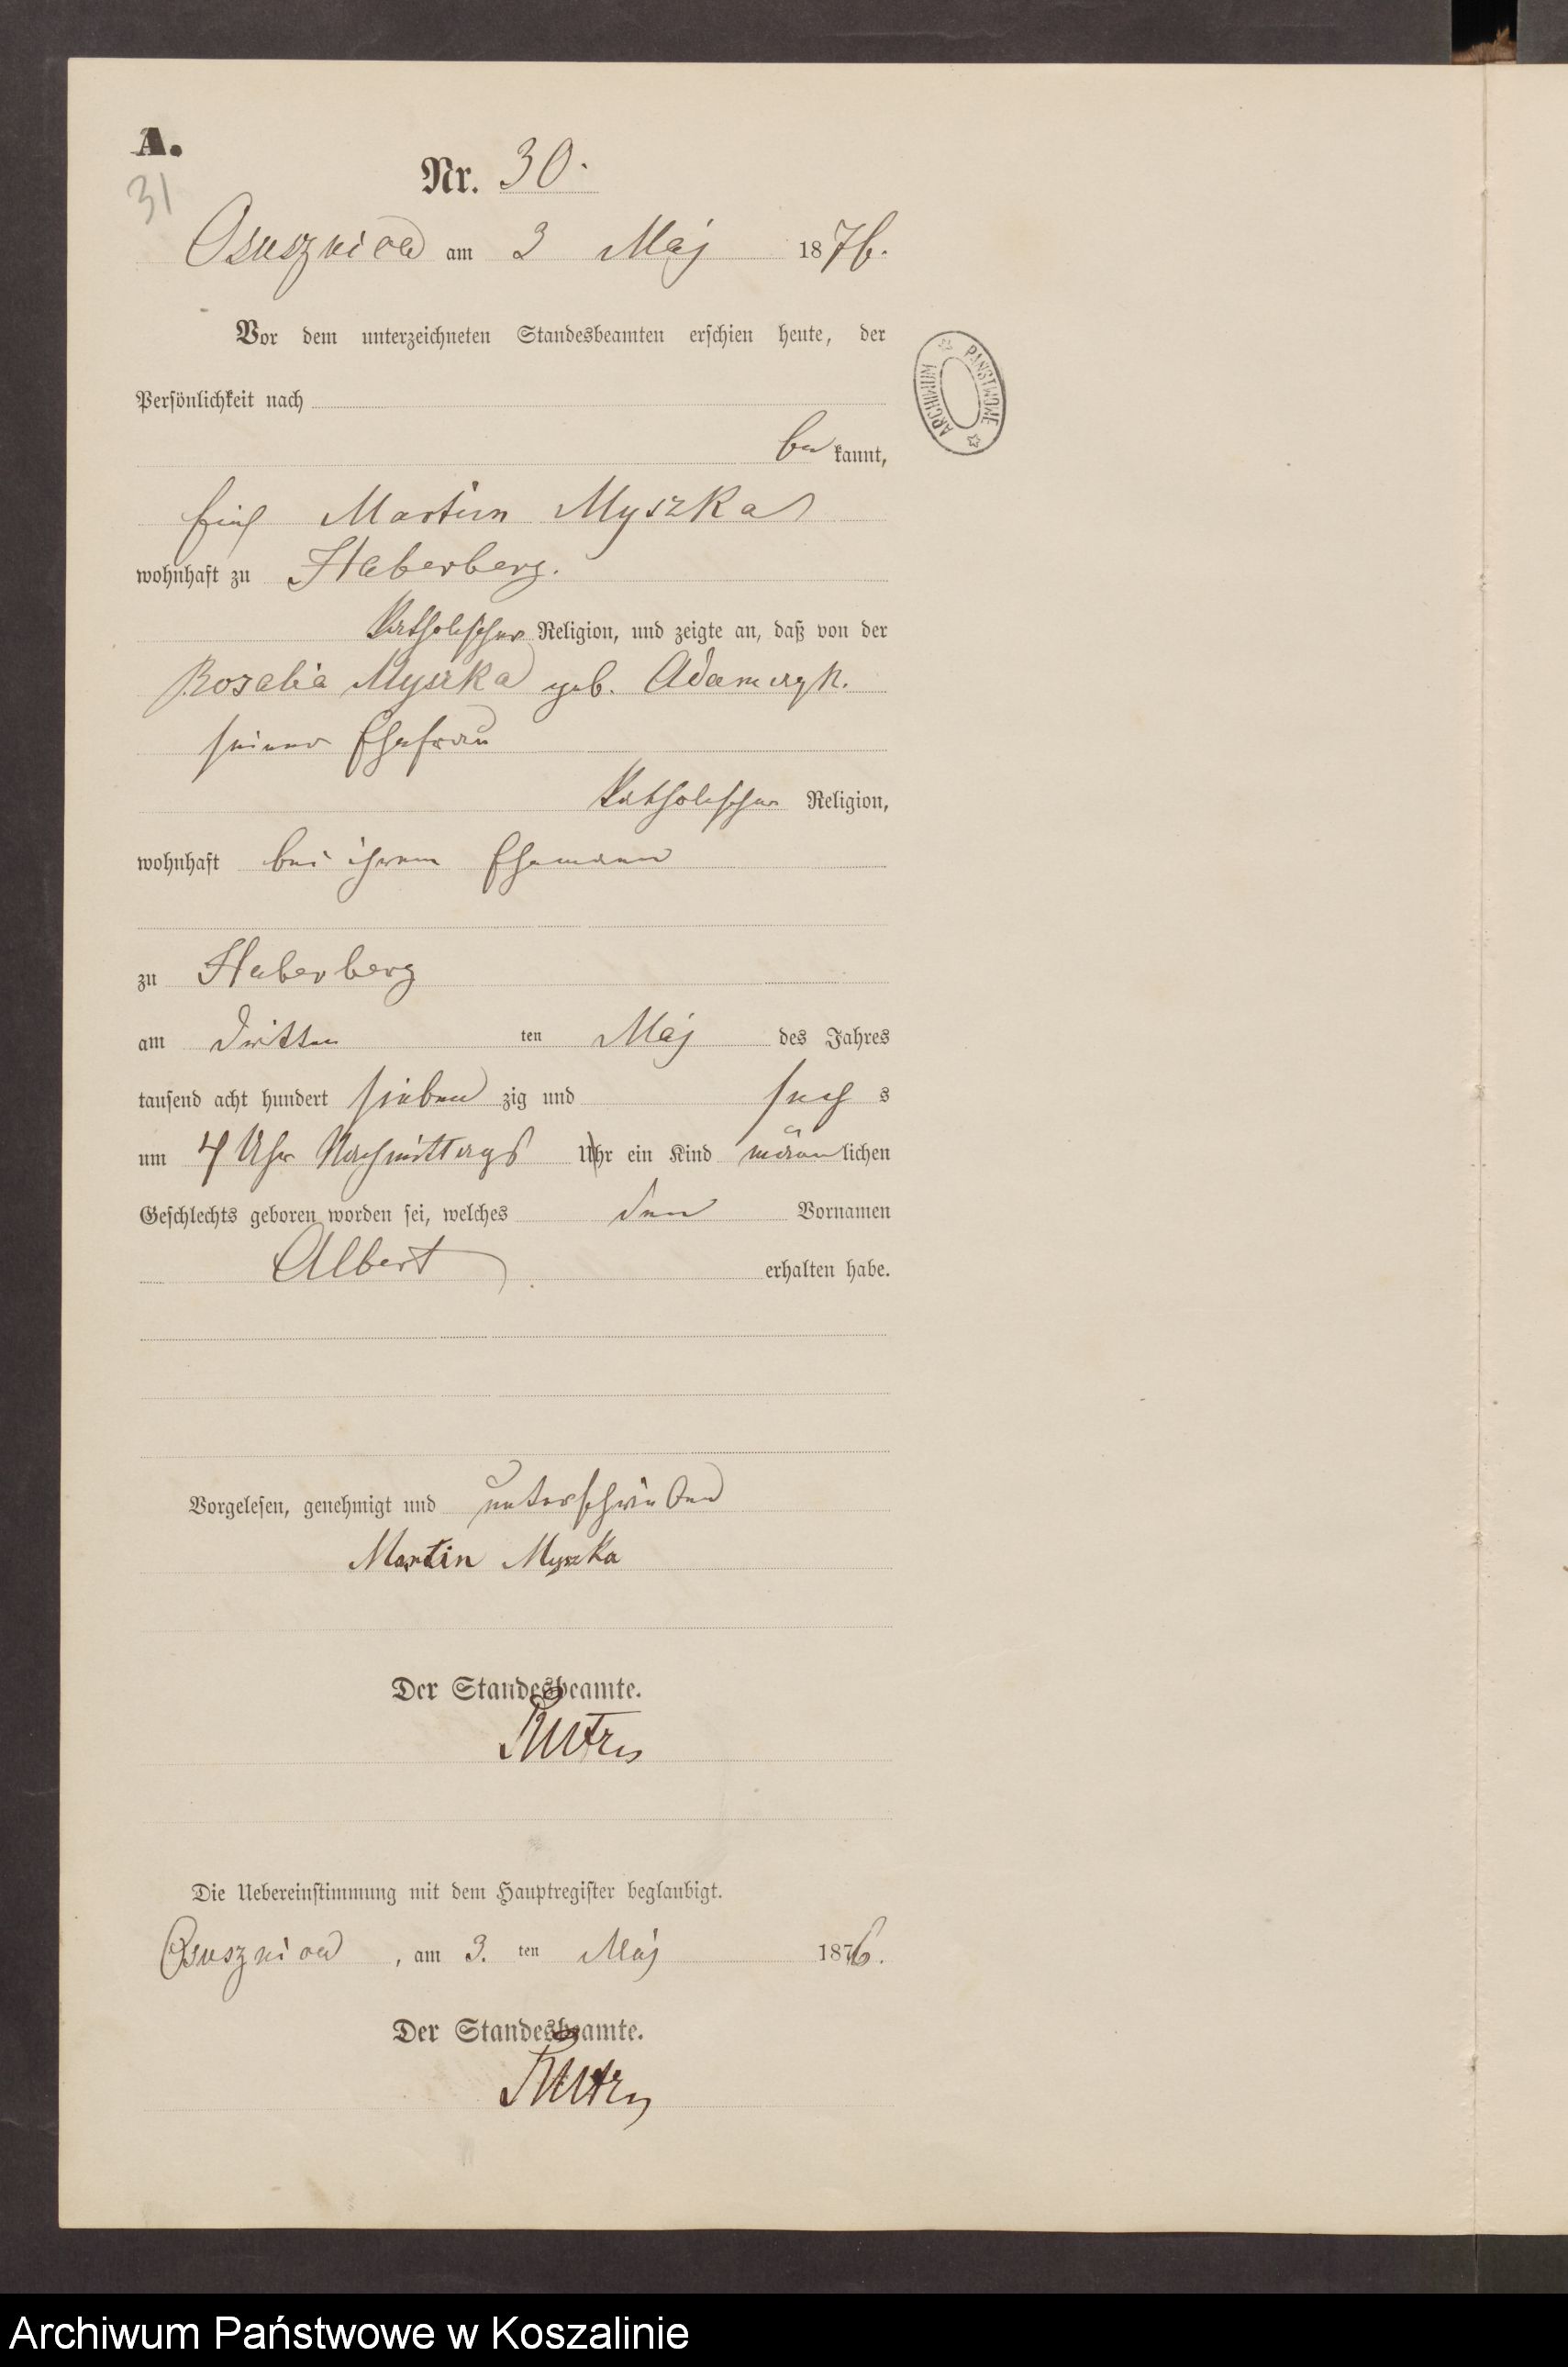 A.
31
Nr. 30.
Osusznica am 3 Maj 1876.
Vor dem unterzeichneten Standesbeamten erschien heute, der
Persönlichkeit nach
be kannt,
Martin Myszka
wohnhaft zu Haberberg.
Katholischer Religion, und zeigte an, daß von der
Rosalia Myszka geb. Adamczyk.
seiner Ehefrau
Katholischer Religion,
wohnhaft bei ihrem Ehemann
zu Haberberg
am dritten ten Maj des Jahres
tausend acht hundert sieben zig und sech s
um 4 Uhr Nachmittags Uhr ein Kind männ lichen
Geschlechts geboren worden sei, welches den Vornamen
Albert erhalten habe.
Vorgelesen, genehmigt und unterschrieben
Martin Myszka
Der Standesbeamte.
Die Uebereinstimmung mit dem Hauptregister beglaubigt.
Osusznica, am 3. ten Maj 1876.
Der Standesbeamte.
ARCHIWUM PAŃSTWOWE
Archiwum Państwowe w Koszalinie